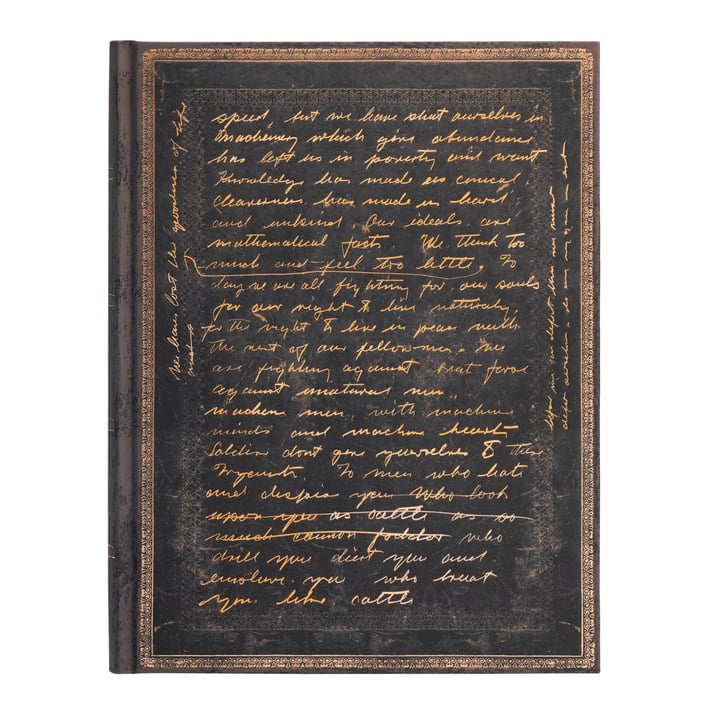 speed, but we have shut ourselves in
Machinery which give abundance
has left us in poverty and want
Knowledge has made us cynical
cleverness has made us hard
and unkind. Our ideals are
mathematical facts We think too
much and feel too little, To
day we are all fighting for our souls
for our right to live naturally
for the right to live in peace with
the rest of our fellow men. We
are fighting against
against unnatural men
machine men, with machine
minds and machine hearts
Soldiers dont give yourselves to the
To men who hate
and despise you who look
upon you as cattle as so
much cannon fodder who
drill you diet you and
enslave you who treat
you like cattle
We have lost the goodness of life